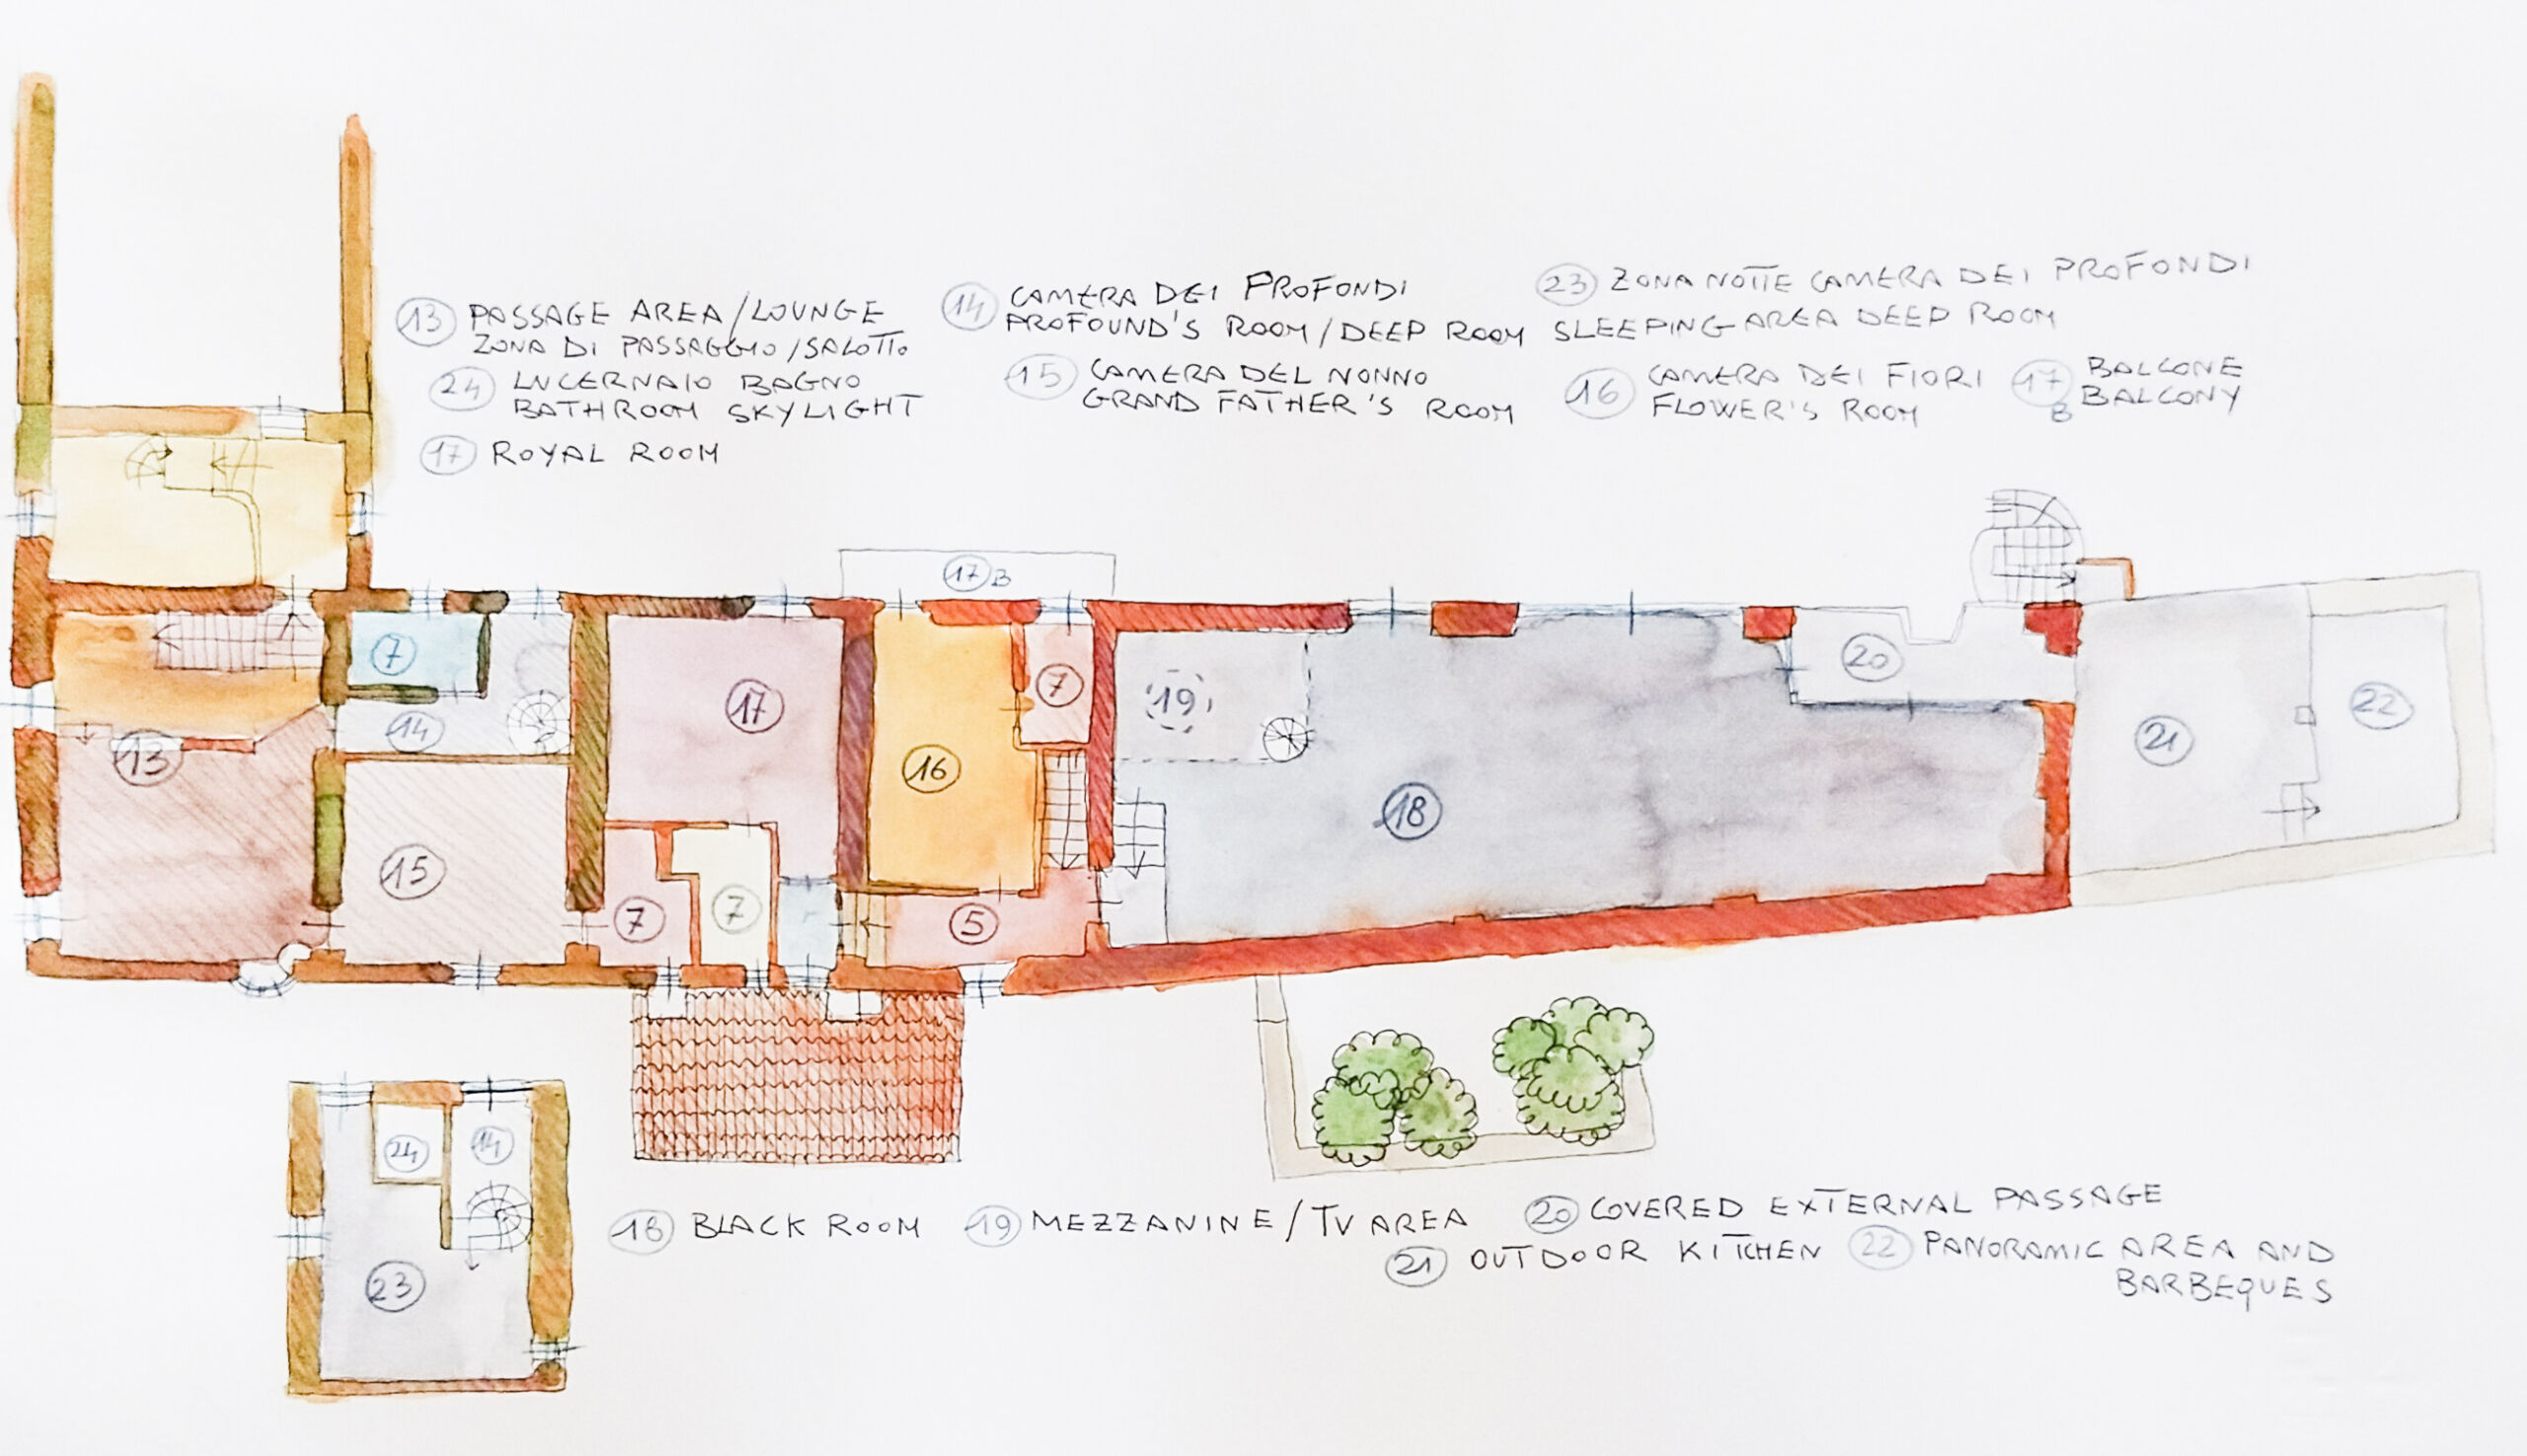 13 PASSAGE AREA/LOUNGE
ZONA DI PASSAGGIO/SALOTTO
24 LUCERNAIO BAGNO
BATHROOM SKYLIGHT
17 ROYAL ROOM
14 CAMERA DEI PROFONDI
PROFOUND'S ROOM/DEEP ROOM
15 CAMERA DEL NONNO
GRAND FATHER'S ROOM
23 ZONA NOTTE CAMERA DEI PROFONDI
SLEEPING AREA DEEP ROOM
16 CAMERA DEI FIORI
FLOWER'S ROOM
17 B BALCONE
BALCONY
17 B
7
14
13
15
17
7
7
16
7
5
19
18
20
21
22
24
14
23
18 BLACK ROOM
19 MEZZANINE/TV AREA
20 COVERED EXTERNAL PASSAGE
21 OUTDOOR KITCHEN
22 PANORAMIC AREA AND
BARBEQUES